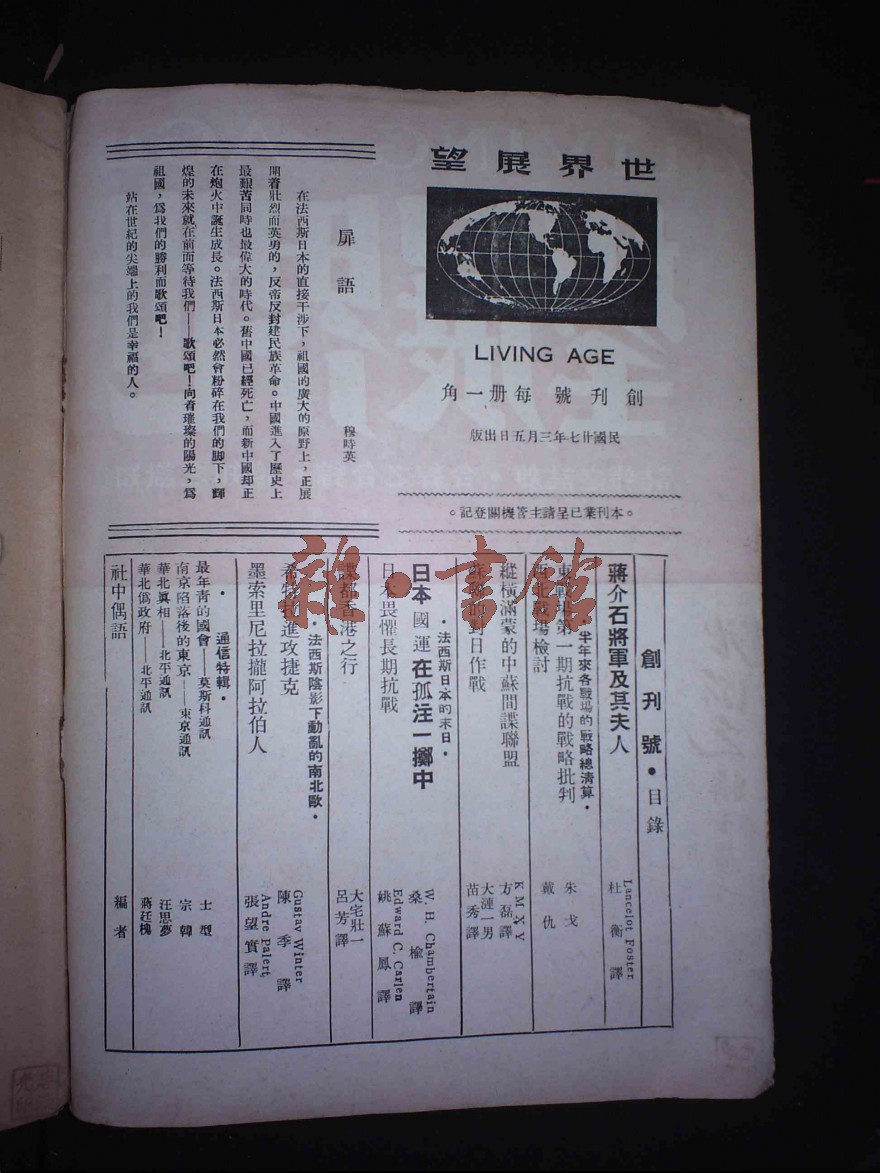 世界展望
LIVING AGE
創刊號 每册一角
民國廿七年三月五日出版
。本刊業已呈請主管機關登記。
扉語
穆時英
在法西斯日本的直接干涉下，祖國的廣大的原野上，正展
開着壯烈而英勇的，反帝反封建民族革命。中國進入了歷史上
最艱苦同時也最偉大的時代。舊中國已經死亡，而新中國却正
在炮火中誕生成長。法西斯日本必然會粉碎在我們的脚下，輝
煌的未來就在前面等待我們——歌頌吧！向着璀璨的陽光，爲
祖國，爲我們的勝利而歌頌吧！
站在世紀的尖端上的我們是幸福的人。
創刊號•目錄
蔣介石將軍及其夫人
Lancelot Foster
杜衡譯
•半年來各戰場的戰略總清算•
東戰場第一期抗戰的戰略批判 朱戈
西北戰場檢討 戴仇
縱橫滿蒙的中蘇間諜聯盟
KMXY
方磊譯
蘇聯的對日作戰
大漣一男
苗秀譯
•法西斯日本的末日•
日本國運在孤注一擲中
W. H. Chambertain
桑榆譯
日本畏懼長期抗戰
Edward C. Carlen
姚蘇鳳譯
諜都香港之行
大宅壯一
呂芳譯
•法西斯陰影下動亂的南北歐•
希特拉進攻捷克
Gustav Winter
陳季譯
墨索里尼拉攏阿拉伯人
Andre Palert
張望實譯
•通信特輯•
最年青的國會——莫斯科通訊 士型
南京陷落後的東京——東京通訊 宗韓
華北眞相——北平通訊 汪思夢
華北僞政府——北平通訊 蔣廷槐
社中偶語 編者
雜•書館